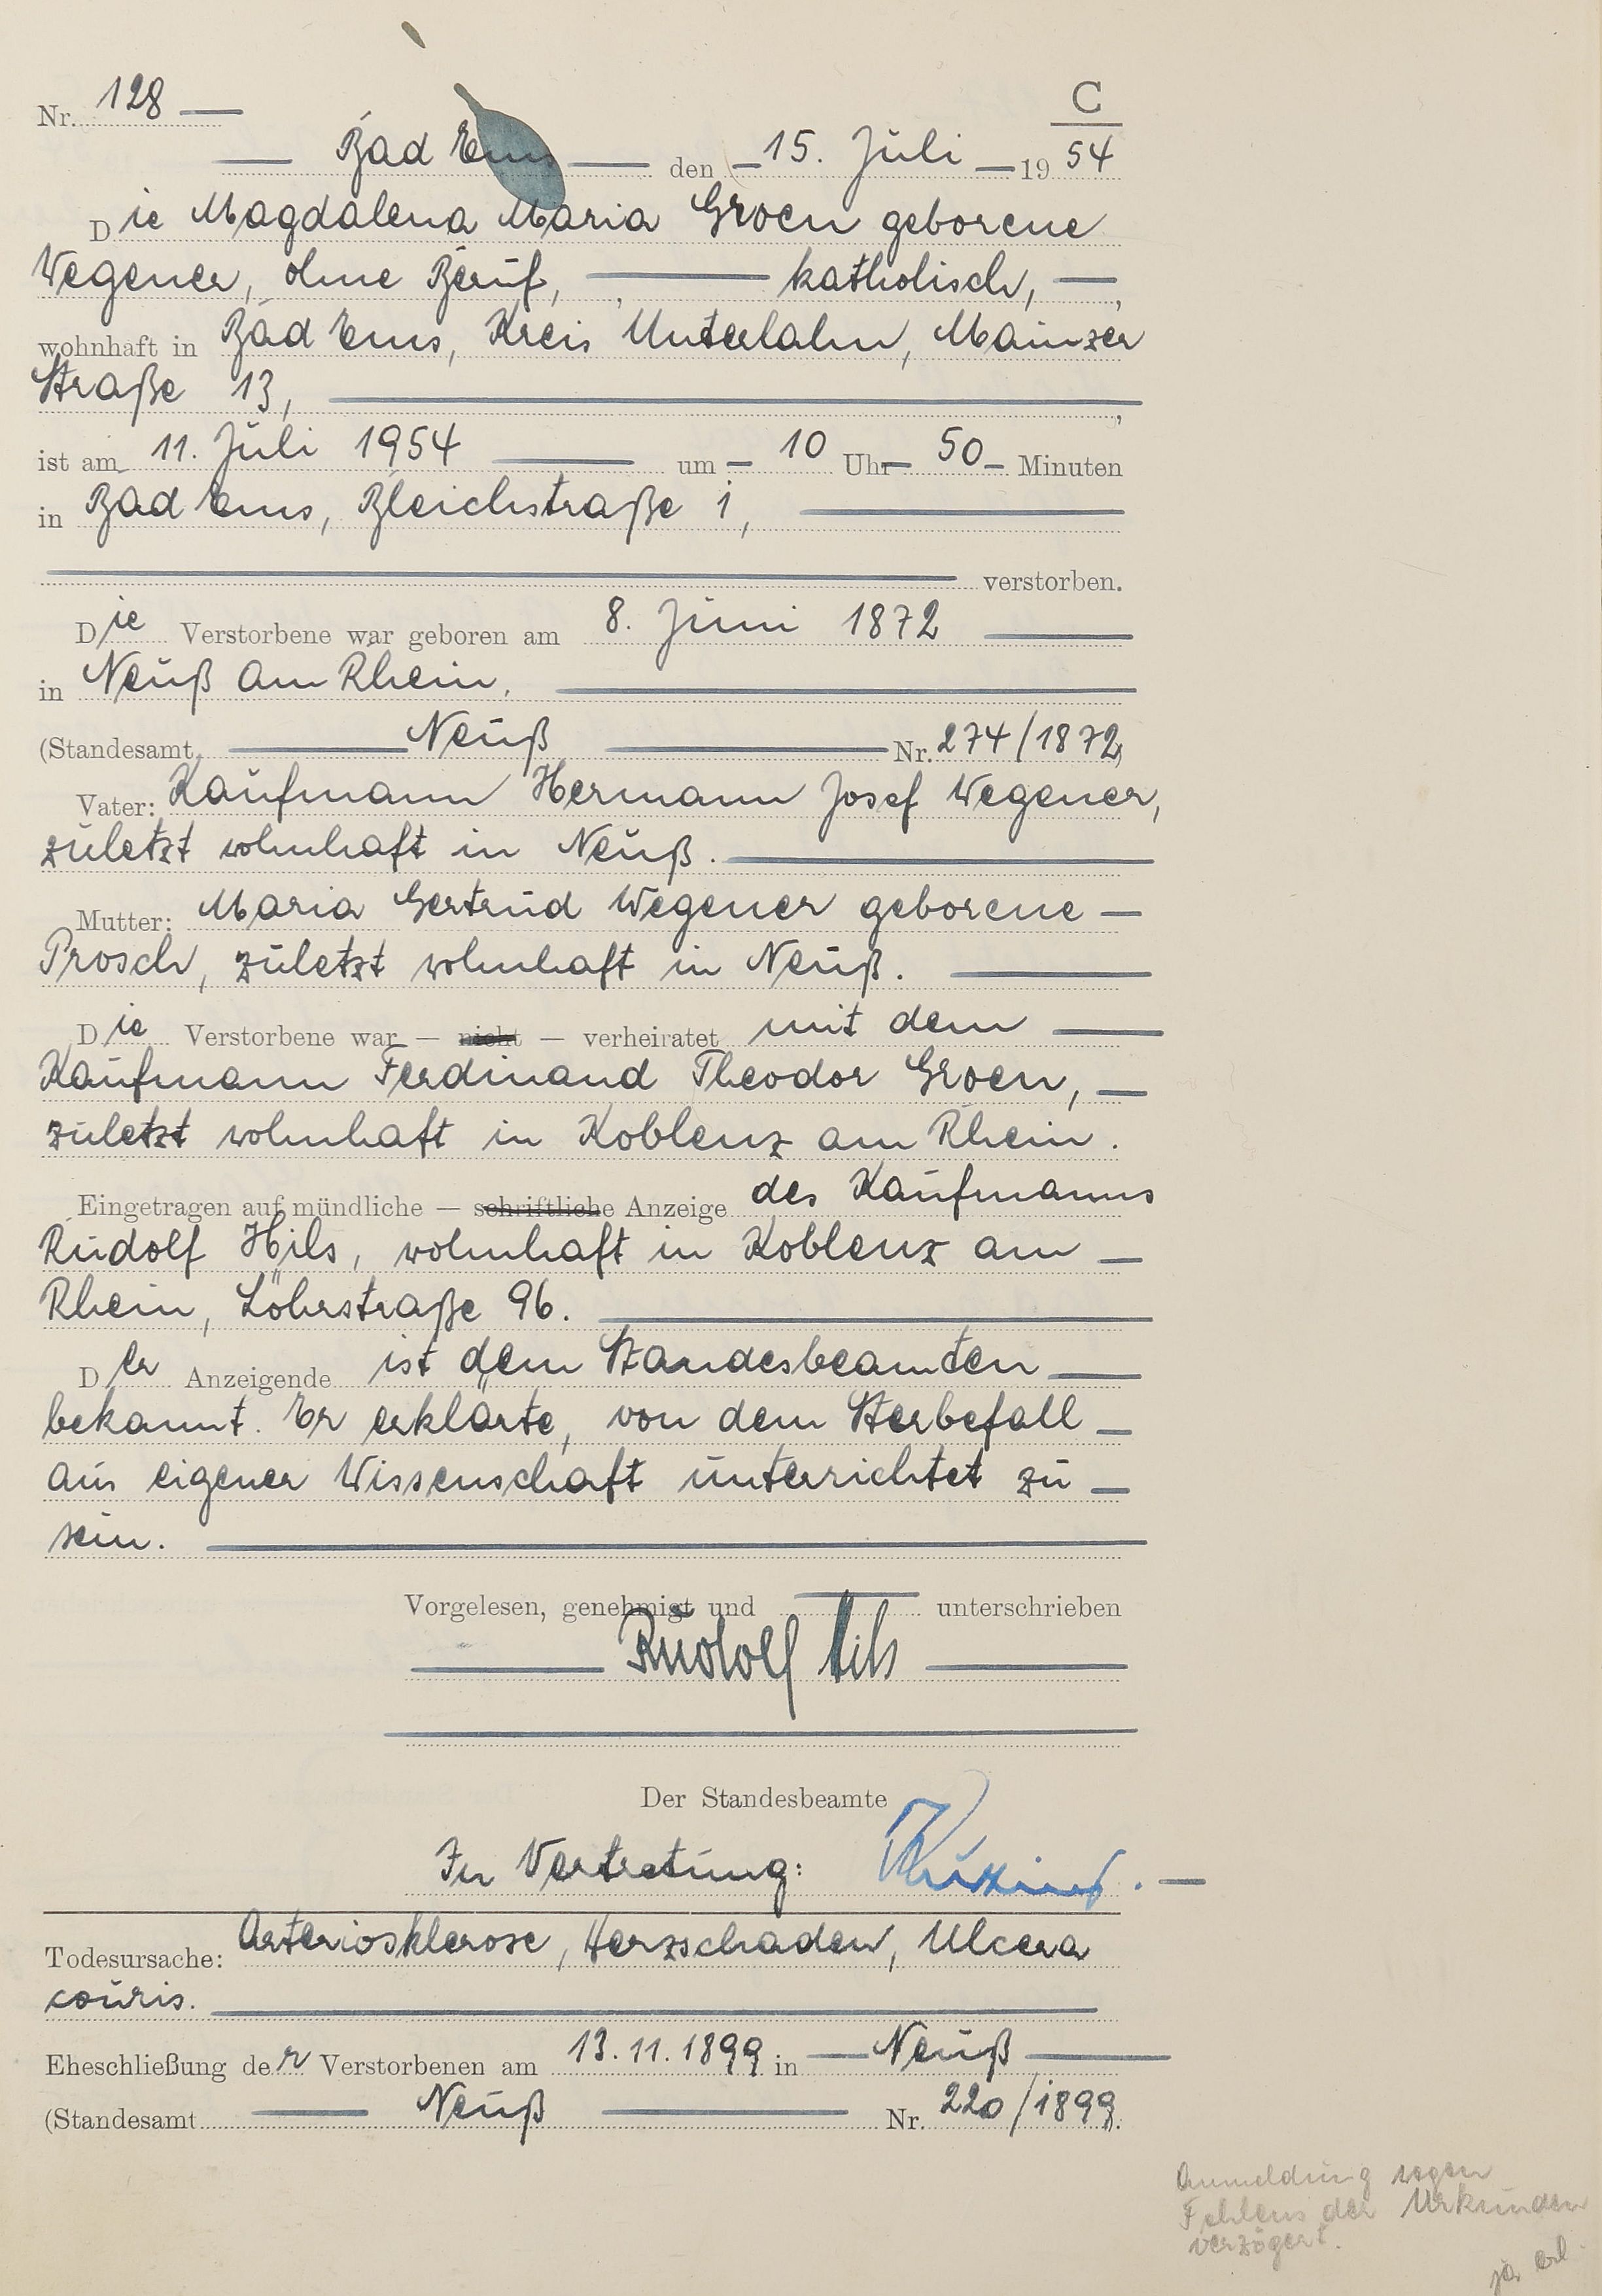 C
Nr. 128 —
— Bad Ems — den — 15. Juli — 19 54
Die Magdalena Maria Groen geborene
Wegener, ohne Beruf, — katholisch, —,
wohnhaft in Bad Ems, Kreis Unterlahn, Mainzer
Straße 13, —,
ist am 11. Juli 1954 — um — 10 Uhr — 50 — Minuten
in Bad Ems, Bleichstraße 1, —
— verstorben.
Die Verstorbene war geboren am 8. Juni 1872 —
in Neuß am Rhein. —
(Standesamt — Neuß — Nr. 274/1872)
Vater: Kaufmann Hermann Josef Wegener,
zuletzt wohnhaft in Neuß. —
Mutter: Maria Gertrud Wegener geborene —
Prosch, zuletzt wohnhaft in Neuß. —
Die Verstorbene war — nicht — verheiratet mit dem —
Kaufmann Ferdinand Theodor Groen, —
zuletzt wohnhaft in Koblenz am Rhein.
Eingetragen auf mündliche — schriftliche Anzeige des Kaufmanns
Rudolf Hils, wohnhaft in Koblenz am —
Rhein, Löhrstraße 96. —
Der Anzeigende ist dem Standesbeamten —
bekannt. Er erklärte, von dem Sterbefall —
aus eigener Wissenschaft unterrichtet zu —
sein. —
Vorgelesen, genehmigt und — unterschrieben
— Rudolf Hils —
Der Standesbeamte
In Vertretung:
Todesursache: Arteriosklerose, Herzschaden, Ulcera
couris. —
Eheschließung der Verstorbenen am 13.11.1899 in — Neuß —
(Standesamt — Neuß — Nr. 220/1899).
Anmeldung wegen
Fehlens der Urkunden
verzögert.